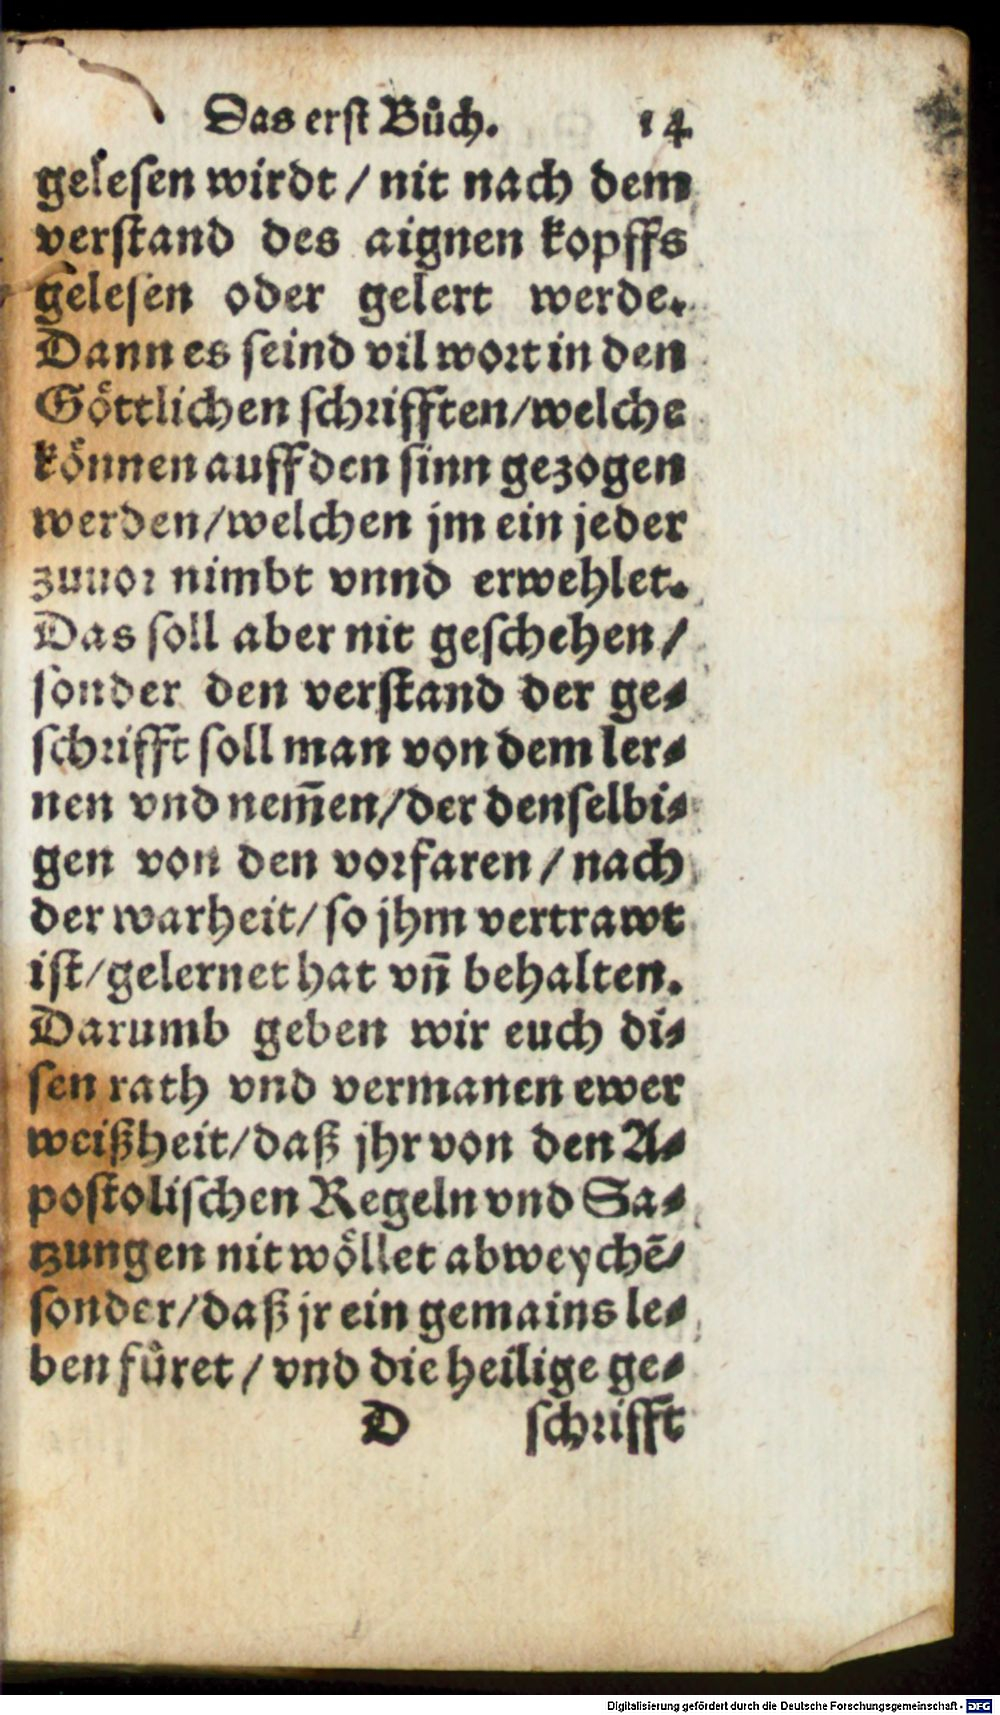 Das erst Bůch. 14
gelesen wirdt / nit nach dem
verstand des aignen kopffs
gelesen oder gelert werde.
Dann es seind vil wort in den
Göttlichen schrifften / welche
können auff den sinn gezogen
werden / welchen jm ein jeder
zuuor nimbt vnnd erwehlet.
Das soll aber nit geschehen /
sonder den verstand der ge⸗
schrifft soll man von dem ler⸗
nen vnd nem̃en / der denselbi⸗
gen von den vorfaren / nach
der warheit / so jhm vertrawt
ist / gelernet hat vñ behalten.
Darumb geben wir euch di⸗
sen rath vnd vermanen ewer
weißheit / daß jhr von den A⸗
postolischen Regeln vnd Sa⸗
tzungen nit wöllet abweychẽ /
sonder / daß jr ein gemains le⸗
ben füret / vnd die heilige ge⸗
D schrifft
Digitalisierung gefördert durch die Deutsche Forschungsgemeinschaft - DFG